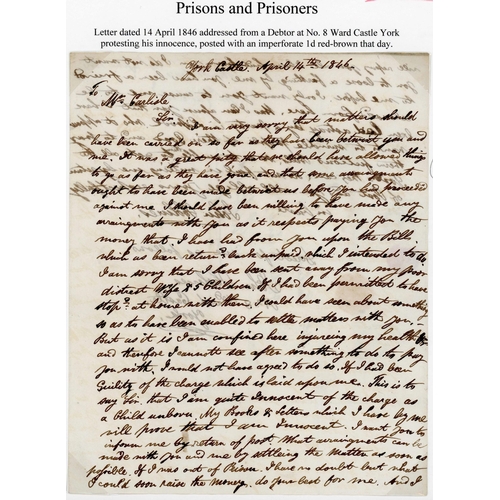 Prisons and Prisoners
Letter dated 14 April 1846 addressed from a Debtor at No. 8 Ward Castle York
protesting his innocence, posted with an imperforate 1d red-brown that day.
York Castle, April 14th 1846
To
Mr. Carlisle
Sir
I am very sorry that matters should
have been carried on so far as they have been between you and
me. It was a great pity that we should have allowed things
to go as far as they have gone and that some arraingments
ought to have been made betwext us before you had proceeded
against me. I should have been willing to have made any
arraingments with you as it respects paying you the
money that I have had from you upon the Bill
which as been return'd back unpaid, which I intended to do
I am sorry that I have been sent away from my poor
distrest Wife & 5 Children, if I had been permitted to have
stop'd at home with them, I could have seen about something
so as to have been enabled to settle matters with you.
But as it is I am confined here injureing my health
and therefore I cannot see after something to do to pay
you with, I would not have agreed to do so. If I had been
Guilty of the charge which is laid upon me. This is to
say Sir. that I am quite Innocent of the charge as
a Child unborn, My Books & Letters which I have by me
will prove that I am Innocent. I want you to
inform me by return of post. What arraingments can be
made with you and me by settleing the Matter as soon as
possible. If I was out of Prison. I have no doubt but what
I could soon raise the Money, do your best for me. And I